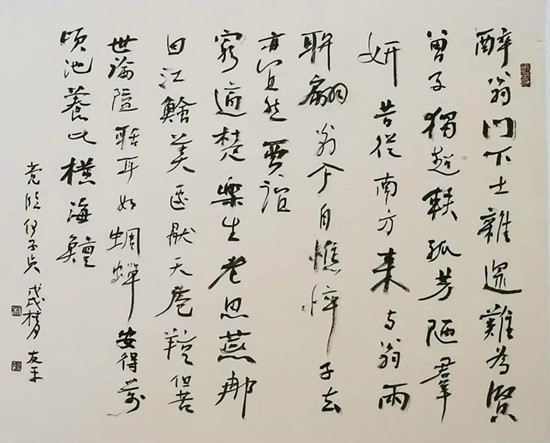 醉翁門下士雜遝難為賢
曾子獨超軼孤芳陋羣
妍昔從南方來与翁兩
聯翩翁今自憔悴子去
亦宜然賈誼
窮適楚樂生老思燕那
因江鱠美遽厭天庖羶但苦
世論隘聒耳如蜩蟬安得萬
頃池養此橫海鱣